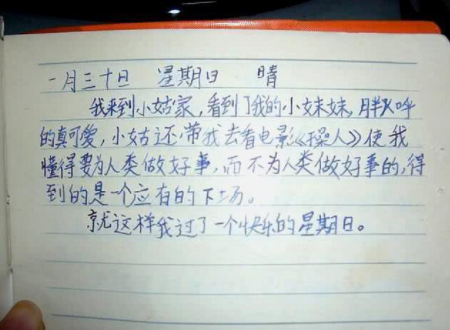 一月三十日 星期日 晴
我来到小姑家,看到了我的小妹妹,胖呼
的真可爱,小姑还带我去看电影《操人》使我
懂得要为人类做好事,而不为人类做好事的,得
到的是一个应有的下场。
就这样我过了一个快乐的星期日。